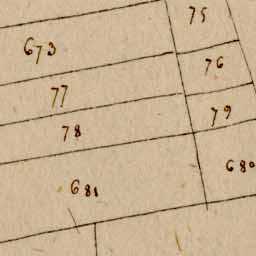 75
673
76
77
79
78
680
681